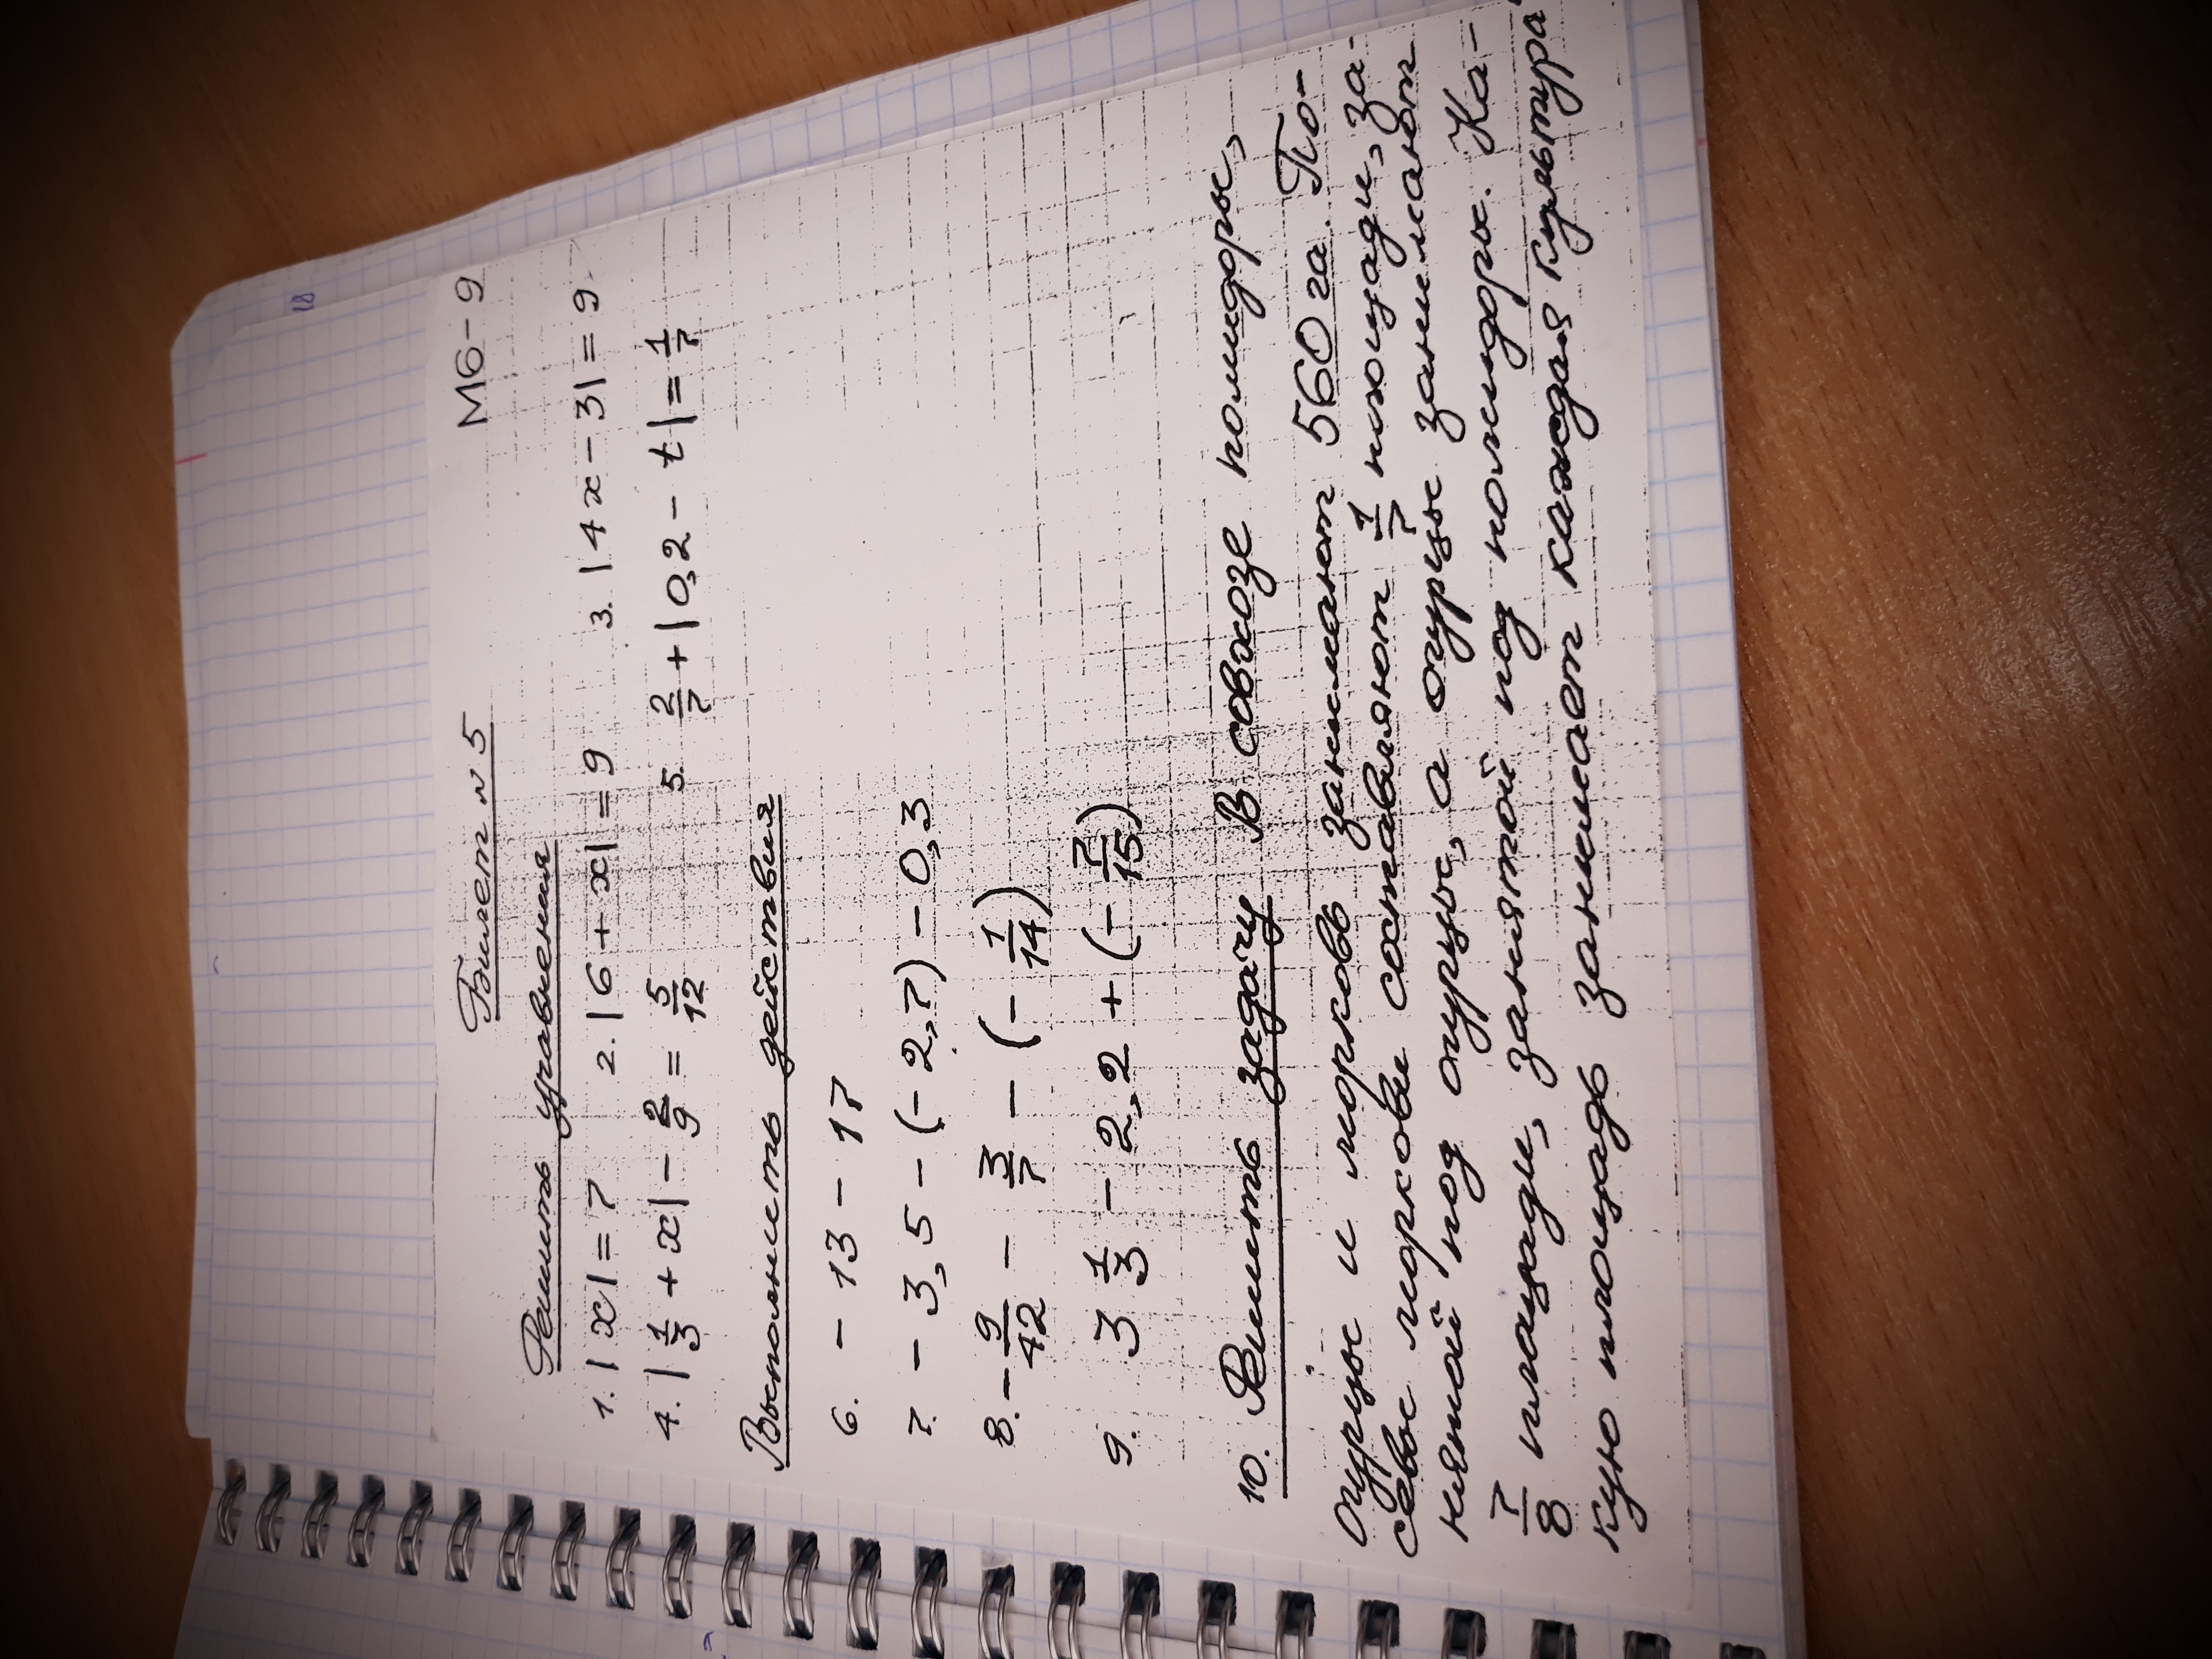 18
М6-9
Билет №5
Решить уравнения
1. |x| = 7 2. |6 + x| = 9 3. |4x - 3| = 9
4. |1/3 + x| - 2/9 = 5/12 5. 2/7 + |0,2 - t| = 1/7
Выполнить действия
6. - 13 - 17
7. - 3,5 - (- 2,7) - 0,3
8. - 9/42 - 3/7 - (- 1/14)
9. 3 1/3 - 2,2 + (- 7/15)
10. Решить задачу В совхозе помидоры,
огурцы и морковь занимают 560 га. По-
севы моркови составляют 1/7 площади, за-
нятой под огурцы, а огурцы занимают
7/8 площади, занятой под помидоры. Ка-
кую площадь занимает каждая культура